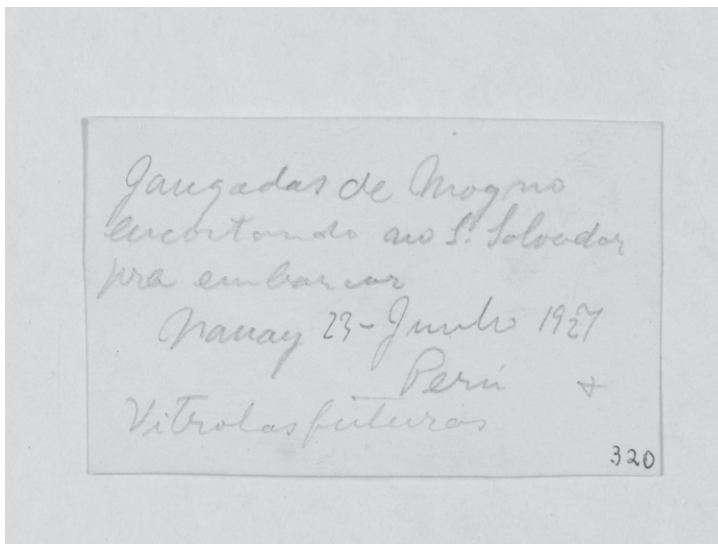 Jangadas de Mogno
encostando no S. Salvador
pra embarcar
Nanay 23-Junho 1927
Perú +
Vitrolas futuras
320